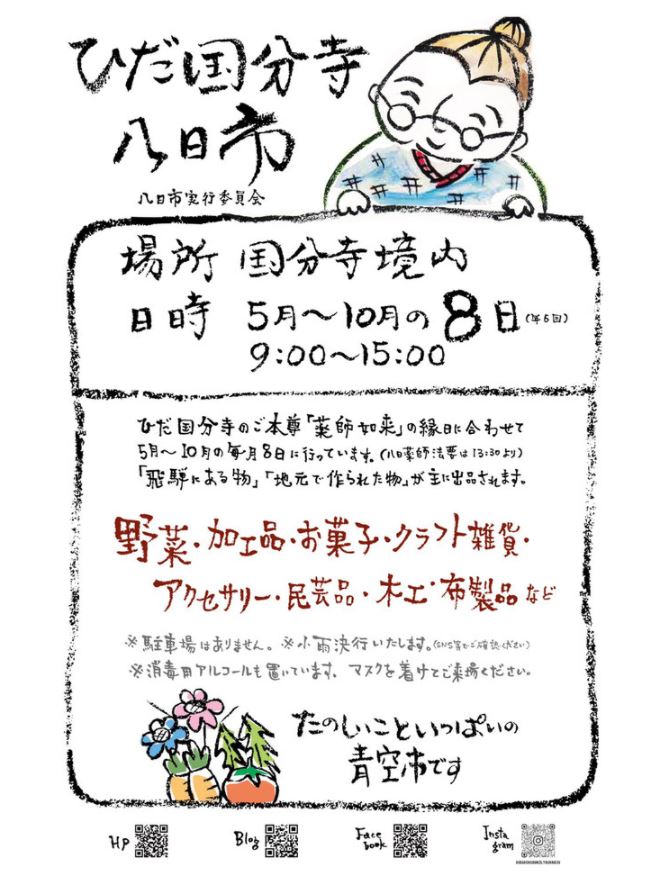 ひだ国分寺
八日市
八日市実行委員会
場所 国分寺境内
日時 5月〜10月の8日(年6回)
9:00〜15:00
ひだ国分寺のご本尊「薬師如来」の縁日に合わせて
5月〜10月の毎月8日に行っています。(八日薬師法要は13:30より)
「飛騨にある物」「地元で作られた物」が主に出品されます。
野菜・加工品・お菓子・クラフト雑貨・
アクセサリー・民芸品・木工・布製品など
※駐車場はありません。※小雨決行いたします。(SNS等でご確認ください)
※消毒用アルコールも置いています、マスクを着けてご来場ください。
たのしいこといっぱいの
青空市です
HP
Blog
Face
book
Insta
gram